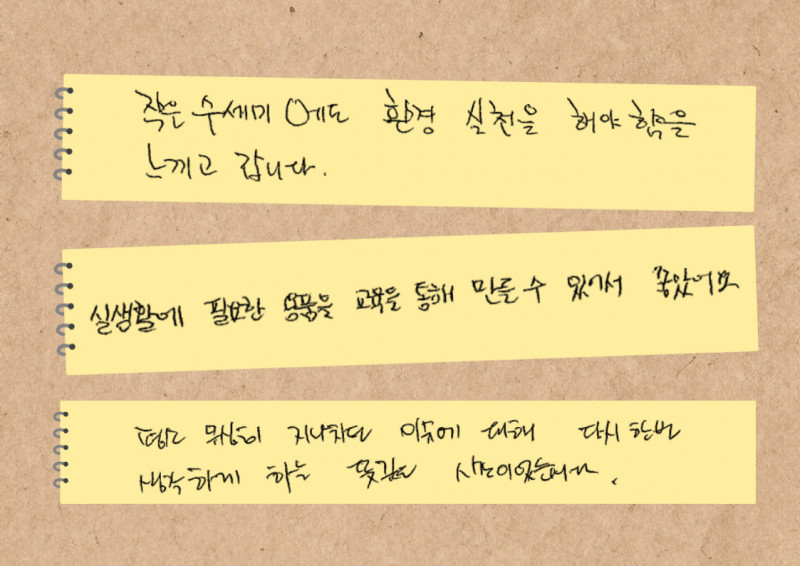 작은 수세미에도 환경 실천을 해야함을
느끼고 갑니다.
실생활에 필요한 용품을 교육을 통해 만들 수 있어서 좋았어요
평소 무심히 지나치던 이슈에 대해 다시 한번
생각하게 하는 뜻깊은 시간이었습니다.